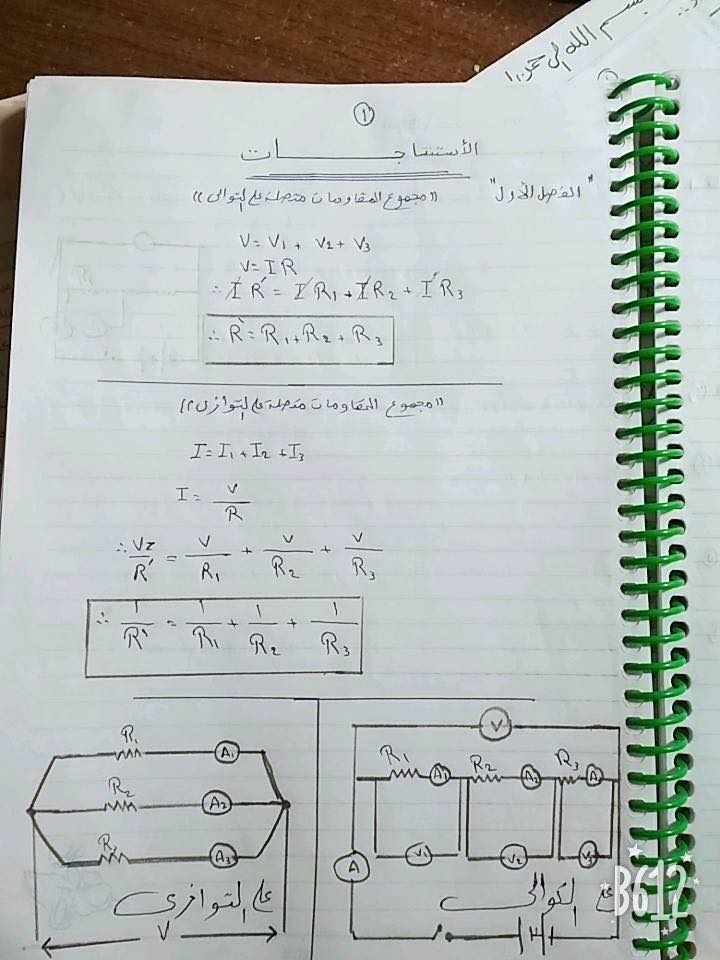 بسم الله الرحمن ا
1
الأستنتاجات
"الفصل الأول"
((مجموع المقاومات متصلة على التوالى))
V = V1 + V2 + V3
V = I R
∴ I R' = I R1 + I R2 + I R3
∴ R' = R1 + R2 + R3
((مجموع المقاومات متصلة على التوازى))
I = I1 + I2 + I3
I = V/R
∴ V/R' = V/R1 + V/R2 + V/R3
∴ 1/R' = 1/R1 + 1/R2 + 1/R3
V
R1 A1 R2 A2 R3 A
V1 V2 V3
A
على التوالى
R1 A1
R2 A2
R A3
على التوازى
V
B612